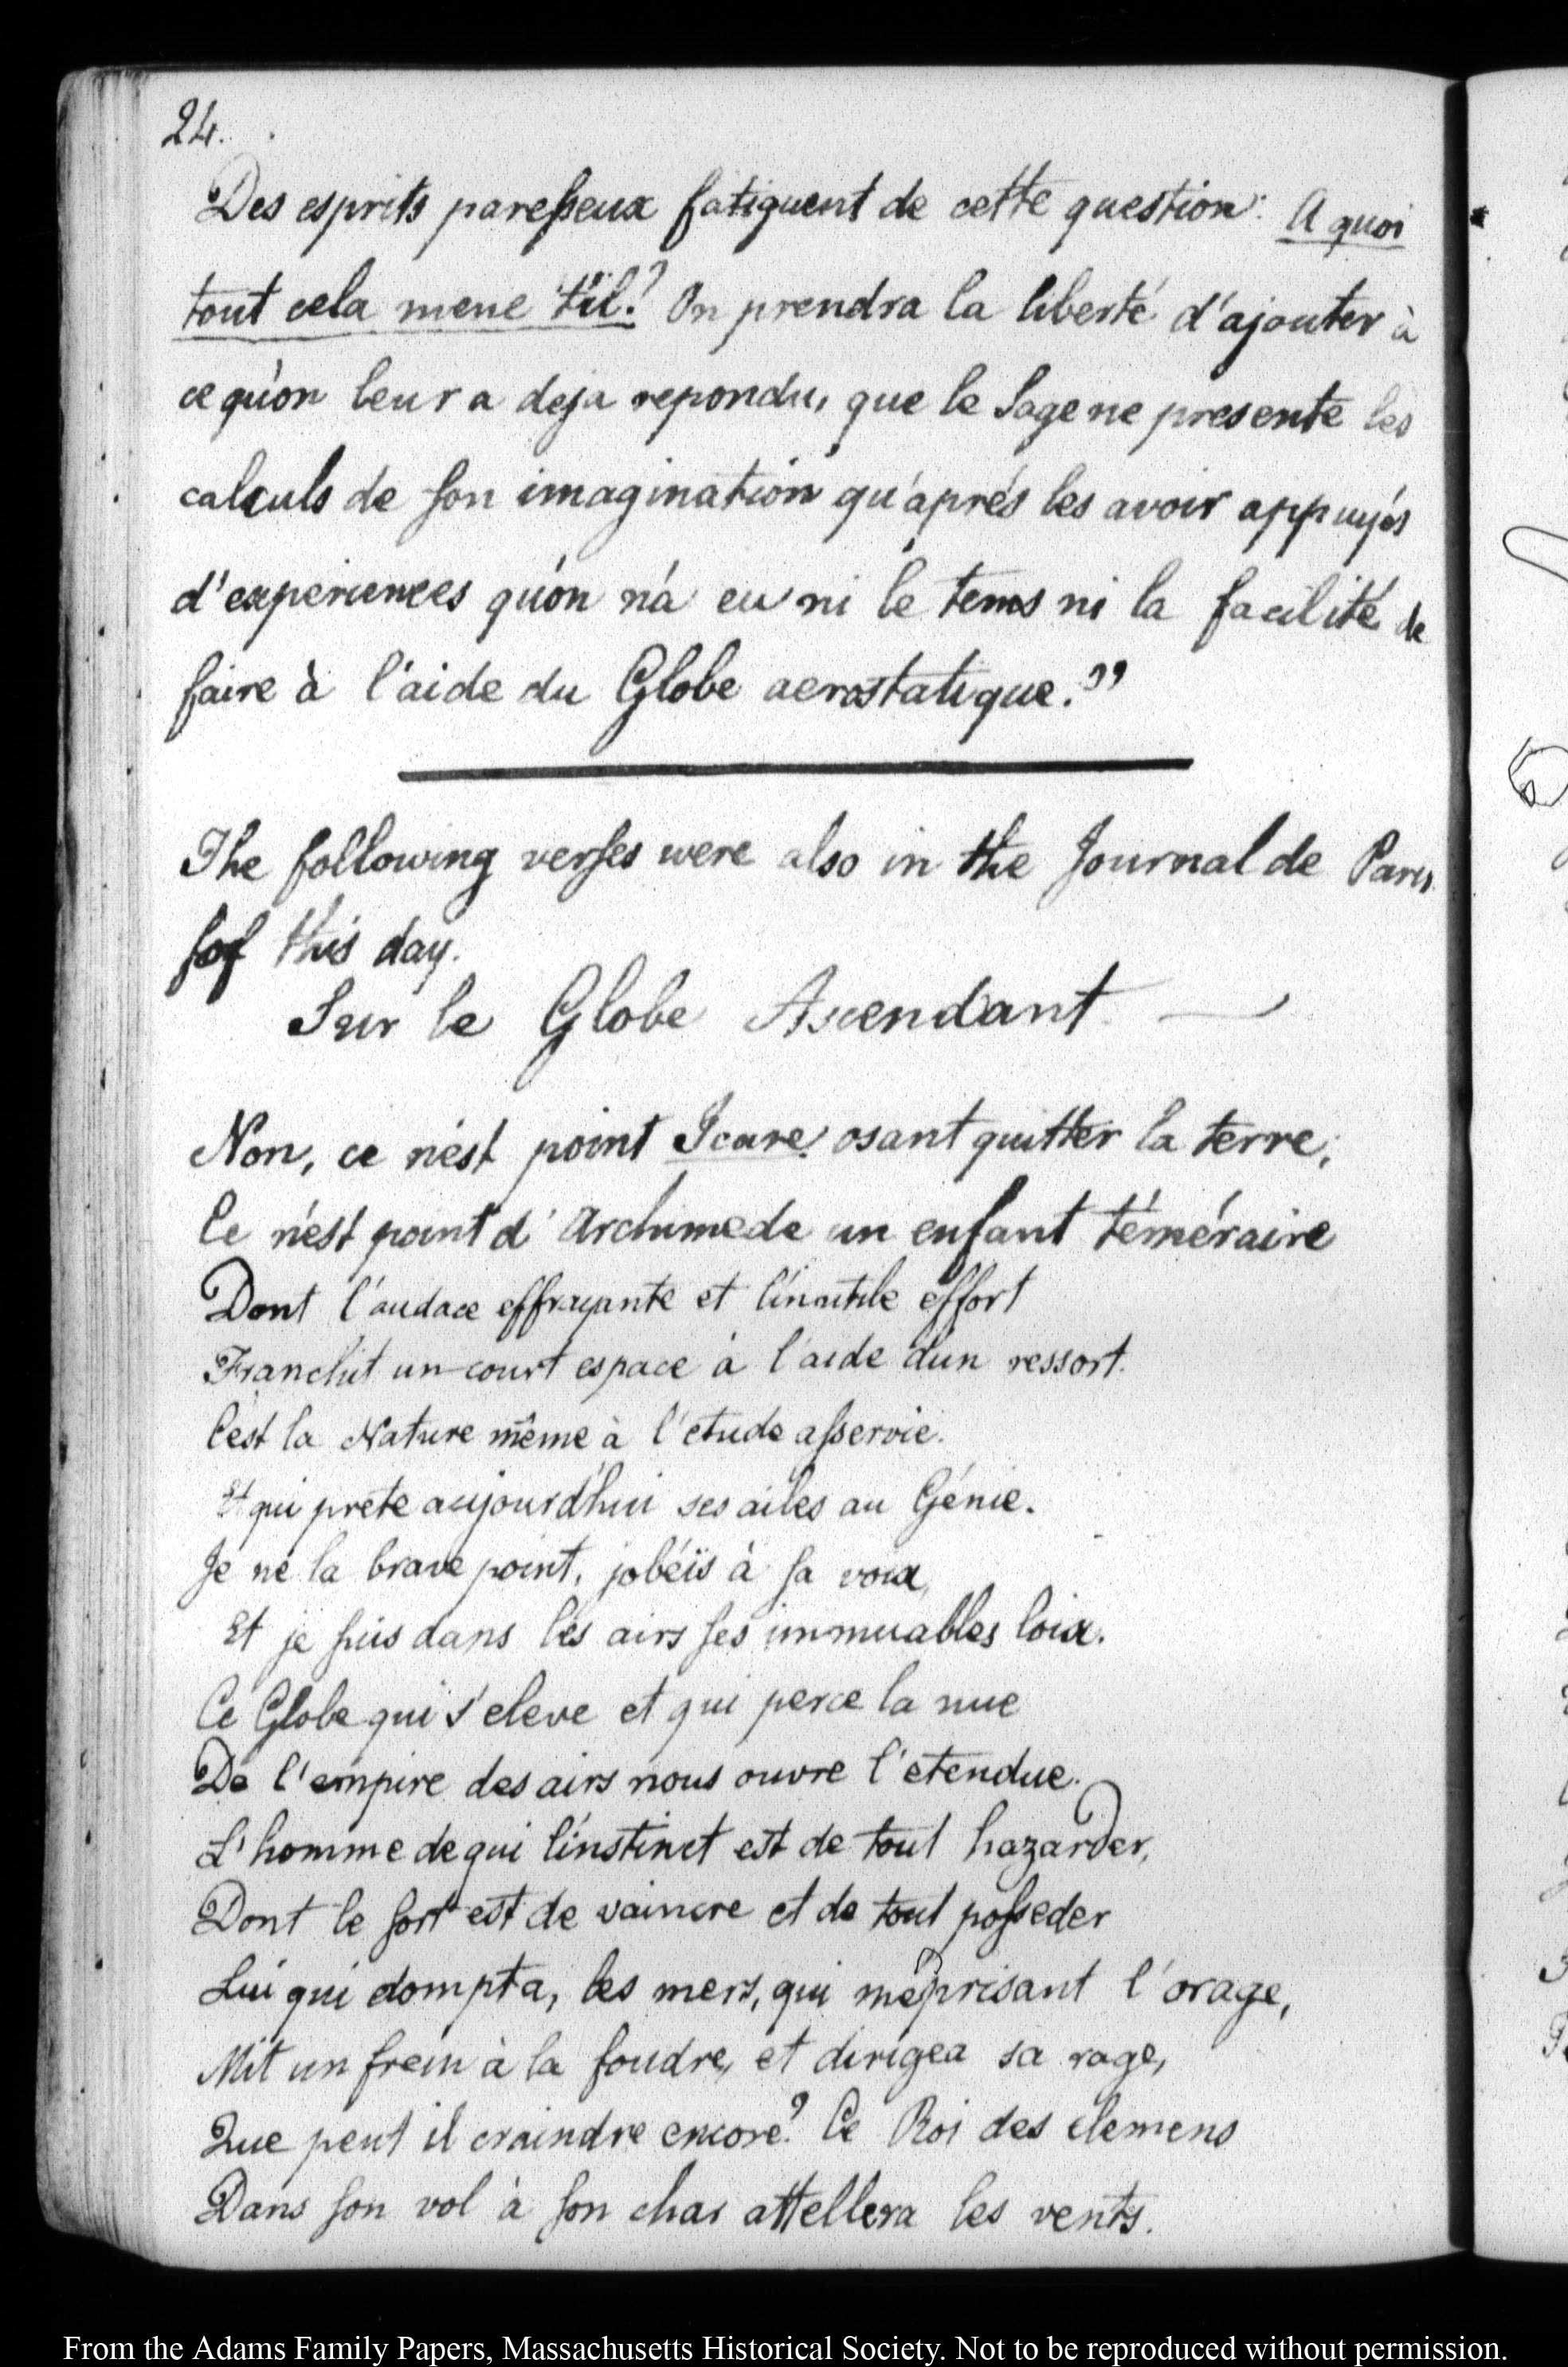 24.
Des esprits paresseux fatiguent de cette question: A quoi
tout cela mene t'il? On prendra la liberté d'ajouter à
ce qu'on leur a deja repondu, que le Sage ne presente les
calculs de son imagination qu'aprés les avoir appuyés
d'experiences qu'on n'a eu ni le tems ni la facilité de
faire à l'aide du Globe aerostatique."
The following verses were also in the Journal de Paris
of this day.
Sur le Globe Ascendant
Non, ce n'est point Icare, osant quitter la terre,
Ce n'est point d'Archimede un enfant téméraire
Dont l'audace effrayante et l'inutile effort
Franchit un court espace à l'aide d'un ressort.
C'est la Nature même à l'etude asservie.
Et qui prete aujourd'hui ses ailes au Génie.
Je ne la brave point, j'obéïs à sa voix,
Et je suis dans les airs ses immuables loix.
Ce Globe qui s'eleve et qui perce la nue
De l'empire des airs nous ouvre l'etendue.
L'homme de qui l'instinct est de tout hazarder,
Dont le sort est de vaincre et de tout posseder
Lui qui dompta, les mers, qui méprisant l'orage,
Mit un frein à la foudre, et dirigea sa rage,
Que peut il craindre encore? Ce Roi des elemens
Dans son vol à son char attellera les vents.
From the Adams Family Papers, Massachusetts Historical Society. Not to be reproduced without permission.